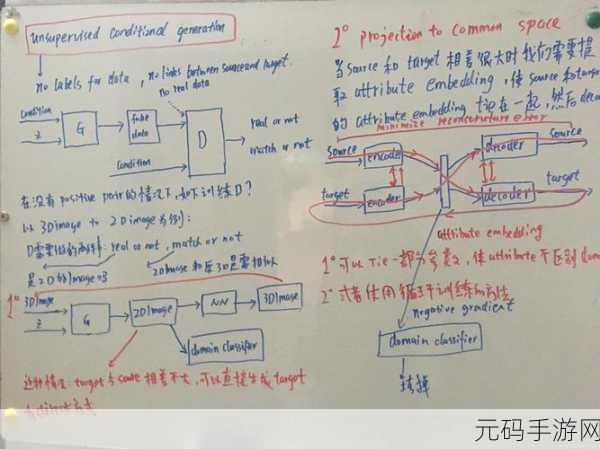 unsupervised conditional generation
no labels for data, no links between source and target.
no real data
condition
z
G
fake
data
D
real or not
match or not
condition
在没有 positive pair 的情况下,如何训练D?
以 3Dimage to 2Dimage 为例:
real or not, match or not
是2D的Image吗
1°
3DImage
z
G
2DImage
NN
3DImage
domain classifier
这种情况: target与
相差不大,可以直接生成 target
2° projection to common space
当 source 和 target 相差很大时我们需要提
取 attribute embedding,使 source 和 target
的 attribute embedding
在一起,然后 deco
minimize reconstruction error
source
encoder
decoder
source
target
encoder
decoder
target
attribute embedding
1° 可以 Tie 一部分参数,使 attribute 不区别 dom
2° 或者使用
训练的方法
negative gradient
domain classifier
元码手游网